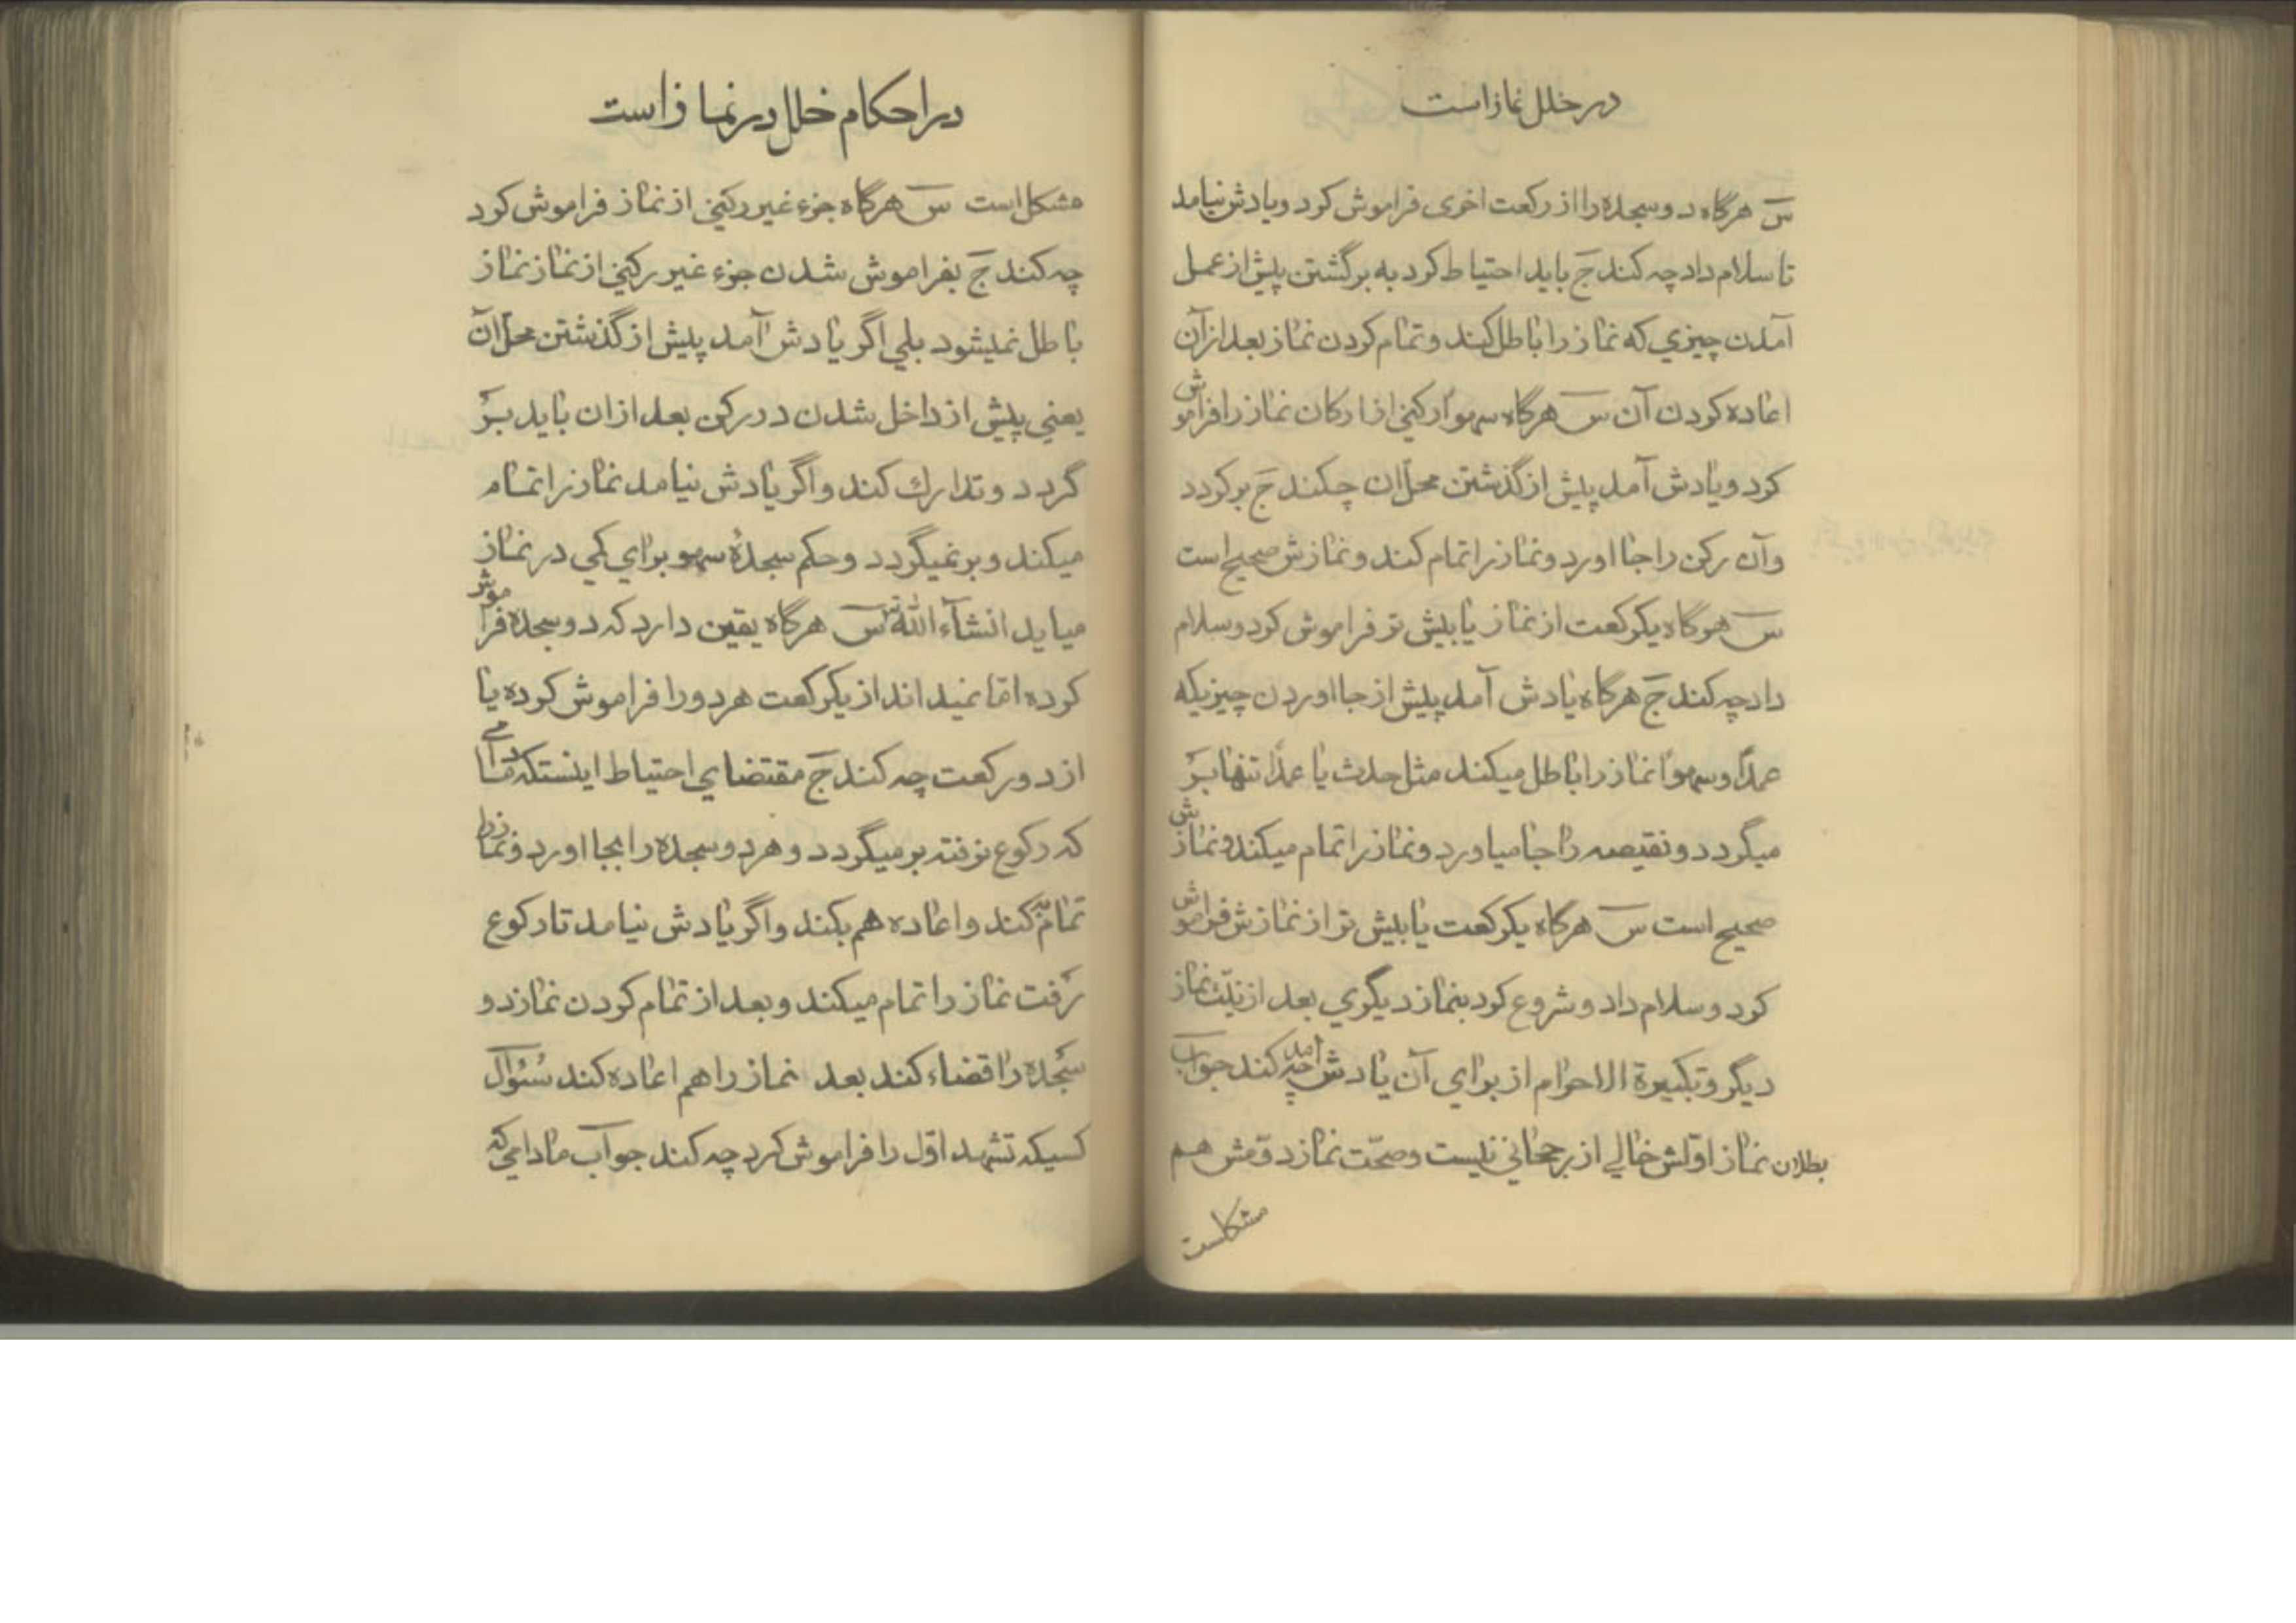 در خلل نماز است
س هرگاه دو سجده را از رکعت اخری فراموش کرد و یادش نیامد
تا سلام داد چه کند ج باید احتیاط کرد به برگشتن پیش از عمل
آمدن چیزی که نماز را باطل کند و تمام کردن نماز بعد از آن
اعاده کردن آن س هرگاه سهوا رکنی از ارکان نماز را فراموش
کرد و یادش آمد پیش از گذشتن محل ان چکند ج برگردد
وآن رکن را جا اورد و نماز را تمام کند و نمازش صحیح است
س هرگاه یکرکعت از نماز یا بیش تر فراموش کرد و سلام
داد چه کند ج هرگاه یادش آمد پیش از جا اوردن چیزیکه
عمدًا و سهوًا نماز را باطل میکند مثل حدث یا عمدًا تنها بر
میگردد و نقیصه را جا میاورد و نماز را تمام میکند و نمازش
صحیح است س هرگاه یکرکعت یا بیش تر از نمازش فراموش
کرد و سلام داد و شروع کرد بنماز دیگری بعد از نیّت نماز
دیگر و تکبیرة الاحرام از برای آن یادش آمد چه کند جواب
بطلان نماز اوّلش خالی از رجحانی نیست و صحّت نماز دوّمش هم
مشکلست
در احکام خلل در نماز است
مشکل است س هرگاه جزء غیر رکنی از نماز فراموش کرد
چه کند ج بفراموش شدن جزء غیر رکنی از نماز نماز
باطل نمیشود بلی اگر یادش آمد پیش از گذشتن محل آن
یعنی پیش از داخل شدن در رکن بعد از ان باید بر
گردد و تدارك کند و اگر یادش نیامد نماز را تمام
میکند و بر نمیگردد و حکم سجدهٔ سهو برای کمی در نماز
میاید انشآء الله س هرگاه یقین دارد که دو سجده فراموش
کرده امّا نمیداند از یکرکعت هر دو را فراموش کرده یا
از دو رکعت چه کند ج مقتضای احتیاط اینستکه مادامی
که رکوع نرفته بر میگردد و هر دو سجده را بجا اورد و نماز را
تمام کند و اعاده هم بکند و اگر یادش نیامد تا رکوع
رفت نماز را تمام میکند و بعد از تمام کردن نماز دو
سجده را قضاء کند بعد نماز را هم اعاده کند سُئوال
کسیکه تشهد اوّل را فراموش کرد چه کند جواب مادامی که